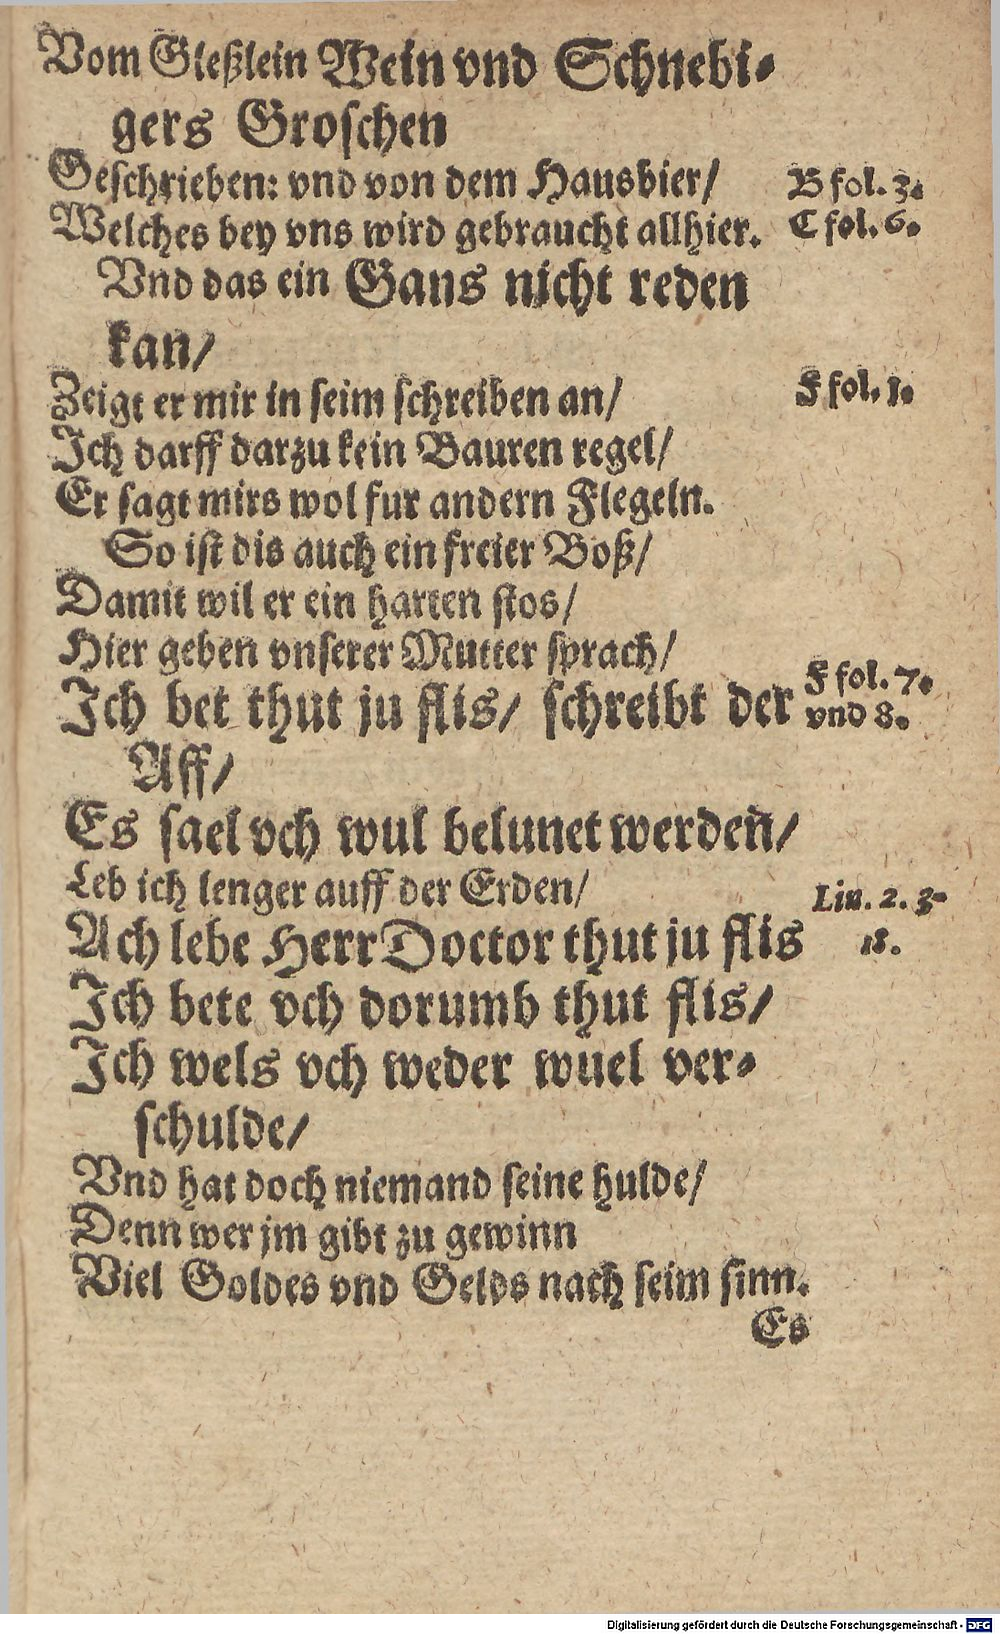 Vom Gleßlein Wein vnd Schnebi-
gers Groschen
Geschrieben: vnd von dem Hausbier/
B fol. 3.
Welches bey vns wird gebraucht allhier.
C fol. 6.
Vnd das ein Gans nicht reden
kan/
Zeigt er mir in seim schreiben an/
F fol. 1.
Ich darff darzu kein Bauren regel/
Er sagt mirs wol fur andern Flegeln.
So ist dis auch ein freier Boß/
Damit wil er ein harten stos/
Hier geben vnserer Mutter sprach/
Ich bet thut ju flis/ schreibt der
F fol. 7.
vnd 8.
Aff/
Es sael vch wul belunet werden̄/
Leb ich lenger auff der Erden/
Lin. 2. 3.
Ach lebe Herr Doctor thut ju flis
18.
Ich bete vch dorumb thut flis/
Ich wels vch weder wuel ver-
schulde/
Vnd hat doch niemand seine hulde/
Denn wer jm gibt zu gewinn
Viel Goldes vnd Gelds nach seim sinn.
Es
Digitalisierung gefördert durch die Deutsche Forschungsgemeinschaft - DFG